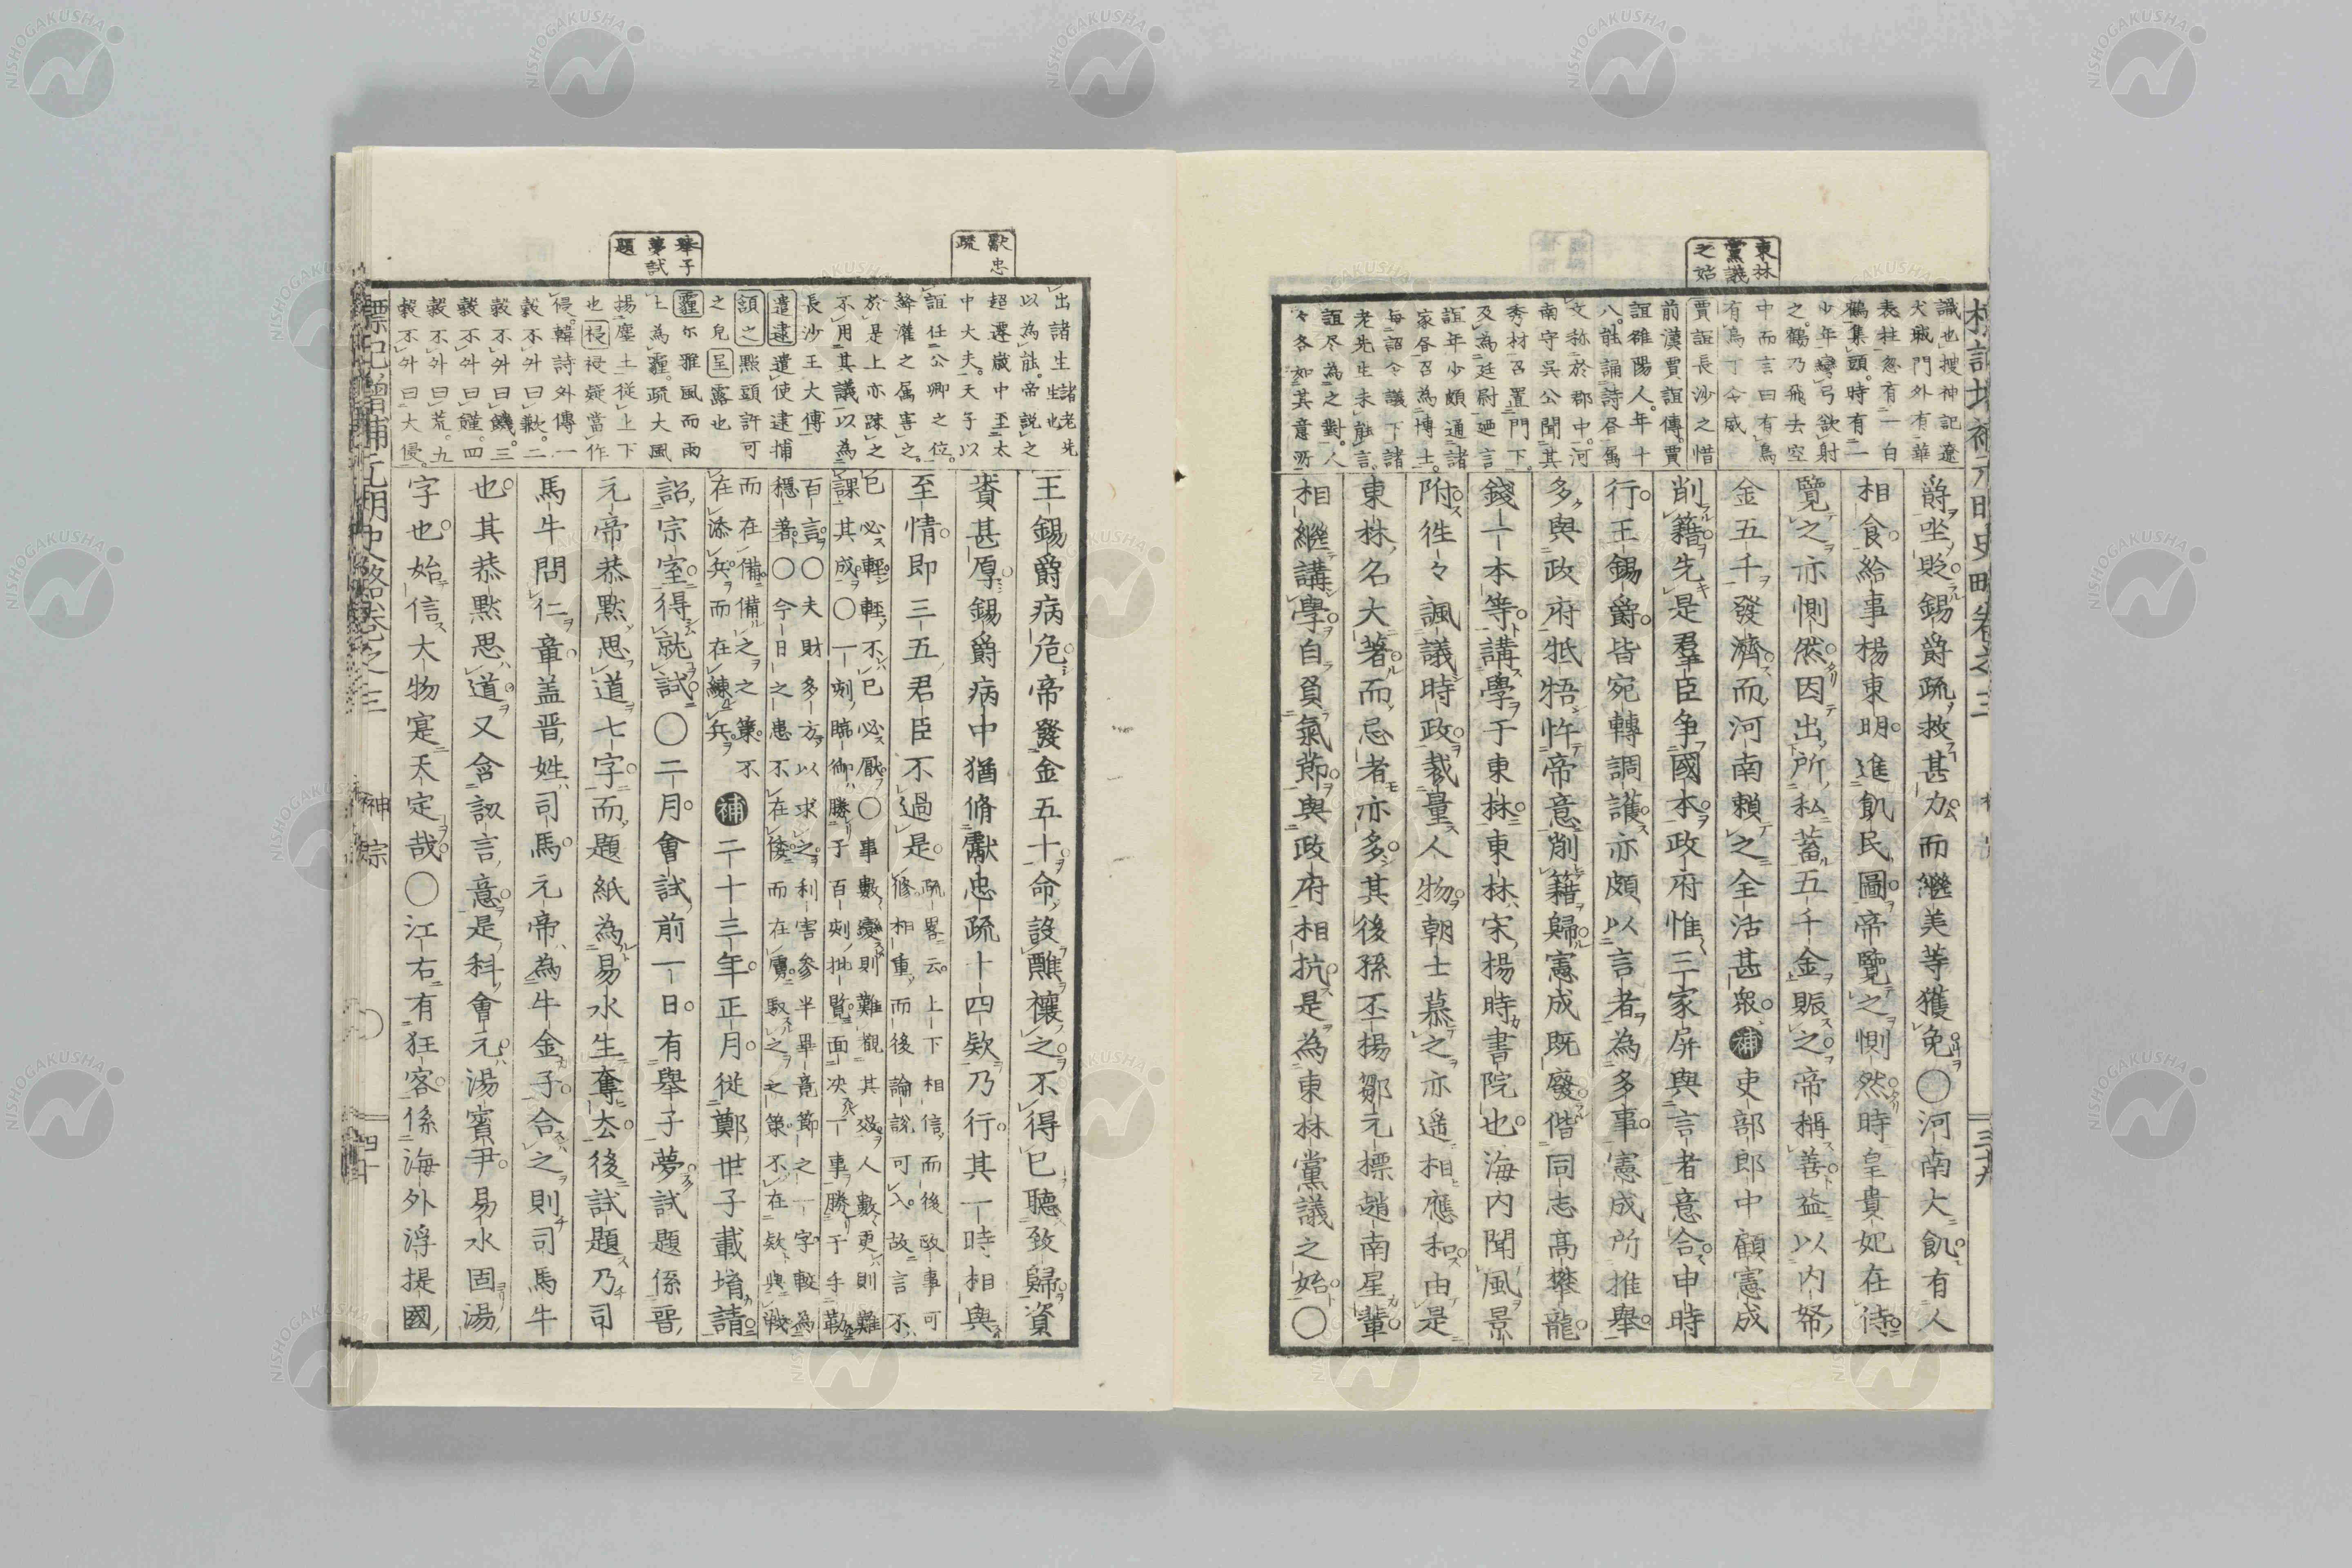 東林
黨議
之始
識也搜神記遼
犬戝門外有華
表柱忽有一白
鶴集頭時有一
少年彎弓欲射
之鶴乃飛去空
中而言曰有鳥
有鳥丁令威
賈誼長沙之惜
前漢賈誼傳賈
誼雒陽人年十
八能誦詩書属
文称於郡中河
南守吳公聞其
秀材召置門下
及為廷尉廼言
誼年少頗通諸
家書召為博士
每詔令議下諸
老先生未能言
誼尽為之對人
々各如其意所
爵坐貶錫爵疏救甚力而繼美等獲免〇河南大飢有人
相食給事楊東明進飢民圖帝覽之惻然時皇貴妃在侍
覽之亦惻然因出所私蓄五千金賑之帝稱善益以内帑
金五千發濟而河南賴之全活甚衆補吏部郎中顧憲成
削籍先是羣臣争國本政府惟三家屏與言者意合申時
行王錫爵皆宛轉調護亦頗以言者為多事憲成所推舉
多與政府牴牾忤帝意削籍歸憲成既廢偕同志高攀龍
錢一本等講學于東林東林宋楊時書院也海内聞風景
附徃々諷議時政裁量人物朝士慕之亦遥相應和由是
東林名大著而忌者亦多其後孫丕揚鄒元標趙南星輩
相繼講學自負氣節與政府相抗是為東林黨議之始〇
三十九
獻忠
疏
舉子
夢試
題
出諸生諸老先
生也
以為能帝説之
超遷歳中至太
中大夫天子以
誼任公卿之位
絳灌之属害之
於是上亦疎之
不用其議以為
長沙王大傅
遣逮遣使逮捕
頷之㸃頭許可
之皃呈露也
霾尓雅風而雨
土為霾疏大風
揚塵土従上下
也祲祲疑當作
侵韓詩外傳一
穀不升曰歉二
穀不升曰饑三
穀不升曰饉四
穀不升曰荒五
穀不升曰大侵
王錫爵病危帝發金五十命設醮禳之不得已聽致歸資
賚甚厚錫爵病中猶脩獻忠疏十四欵乃行其一時相與
至情即三五君臣不過是疏畧云上下相信而後政事可
修相重而後論説可入故言不
已必輕輕不已必厭〇事數變則難觀其效人數更則難
課其成〇一刺臨御勝于百刺批覽面决一事勝于手勒
百言〇夫財多方以求之利害參半畢竟節之一字較為
穩著〇今日之患不在倭而在虜馭之之策不在欵與戰
而在備備之之策不
在添兵而在練兵補二十三年正月従鄭世子載堉請
詔宗室得就試〇二月會試前一日有舉子夢試題係晋
元帝恭默思道七字而題紙為易水生奪去後試題乃司
馬牛問仁章盖晋姓司馬元帝為牛金子合之則司馬牛
也其恭默思道又含訒言意是科會元湯賓尹易水固湯
字也始信大物寔天定哉〇江右有狂客係海外浮提國
標記增補元明史略卷之三
神宗
四十